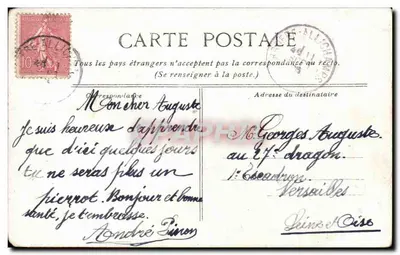 CARTE POSTALE
Tous les pays étrangers n'acceptent pas la correspondance au recto.
(Se renseigner à la poste.)
Correspondance
Adresse du destinataire
Mon cher Auguste
Je suis heureuse d'apprendre
que d'ici quelques jours
tu ne seras plus un
pierrot. Bonjour et bonne
santé, je t'embrasse.
André
M. Georges Auguste
au 27e dragon
1er Escadron
Versailles
Seine et Oise